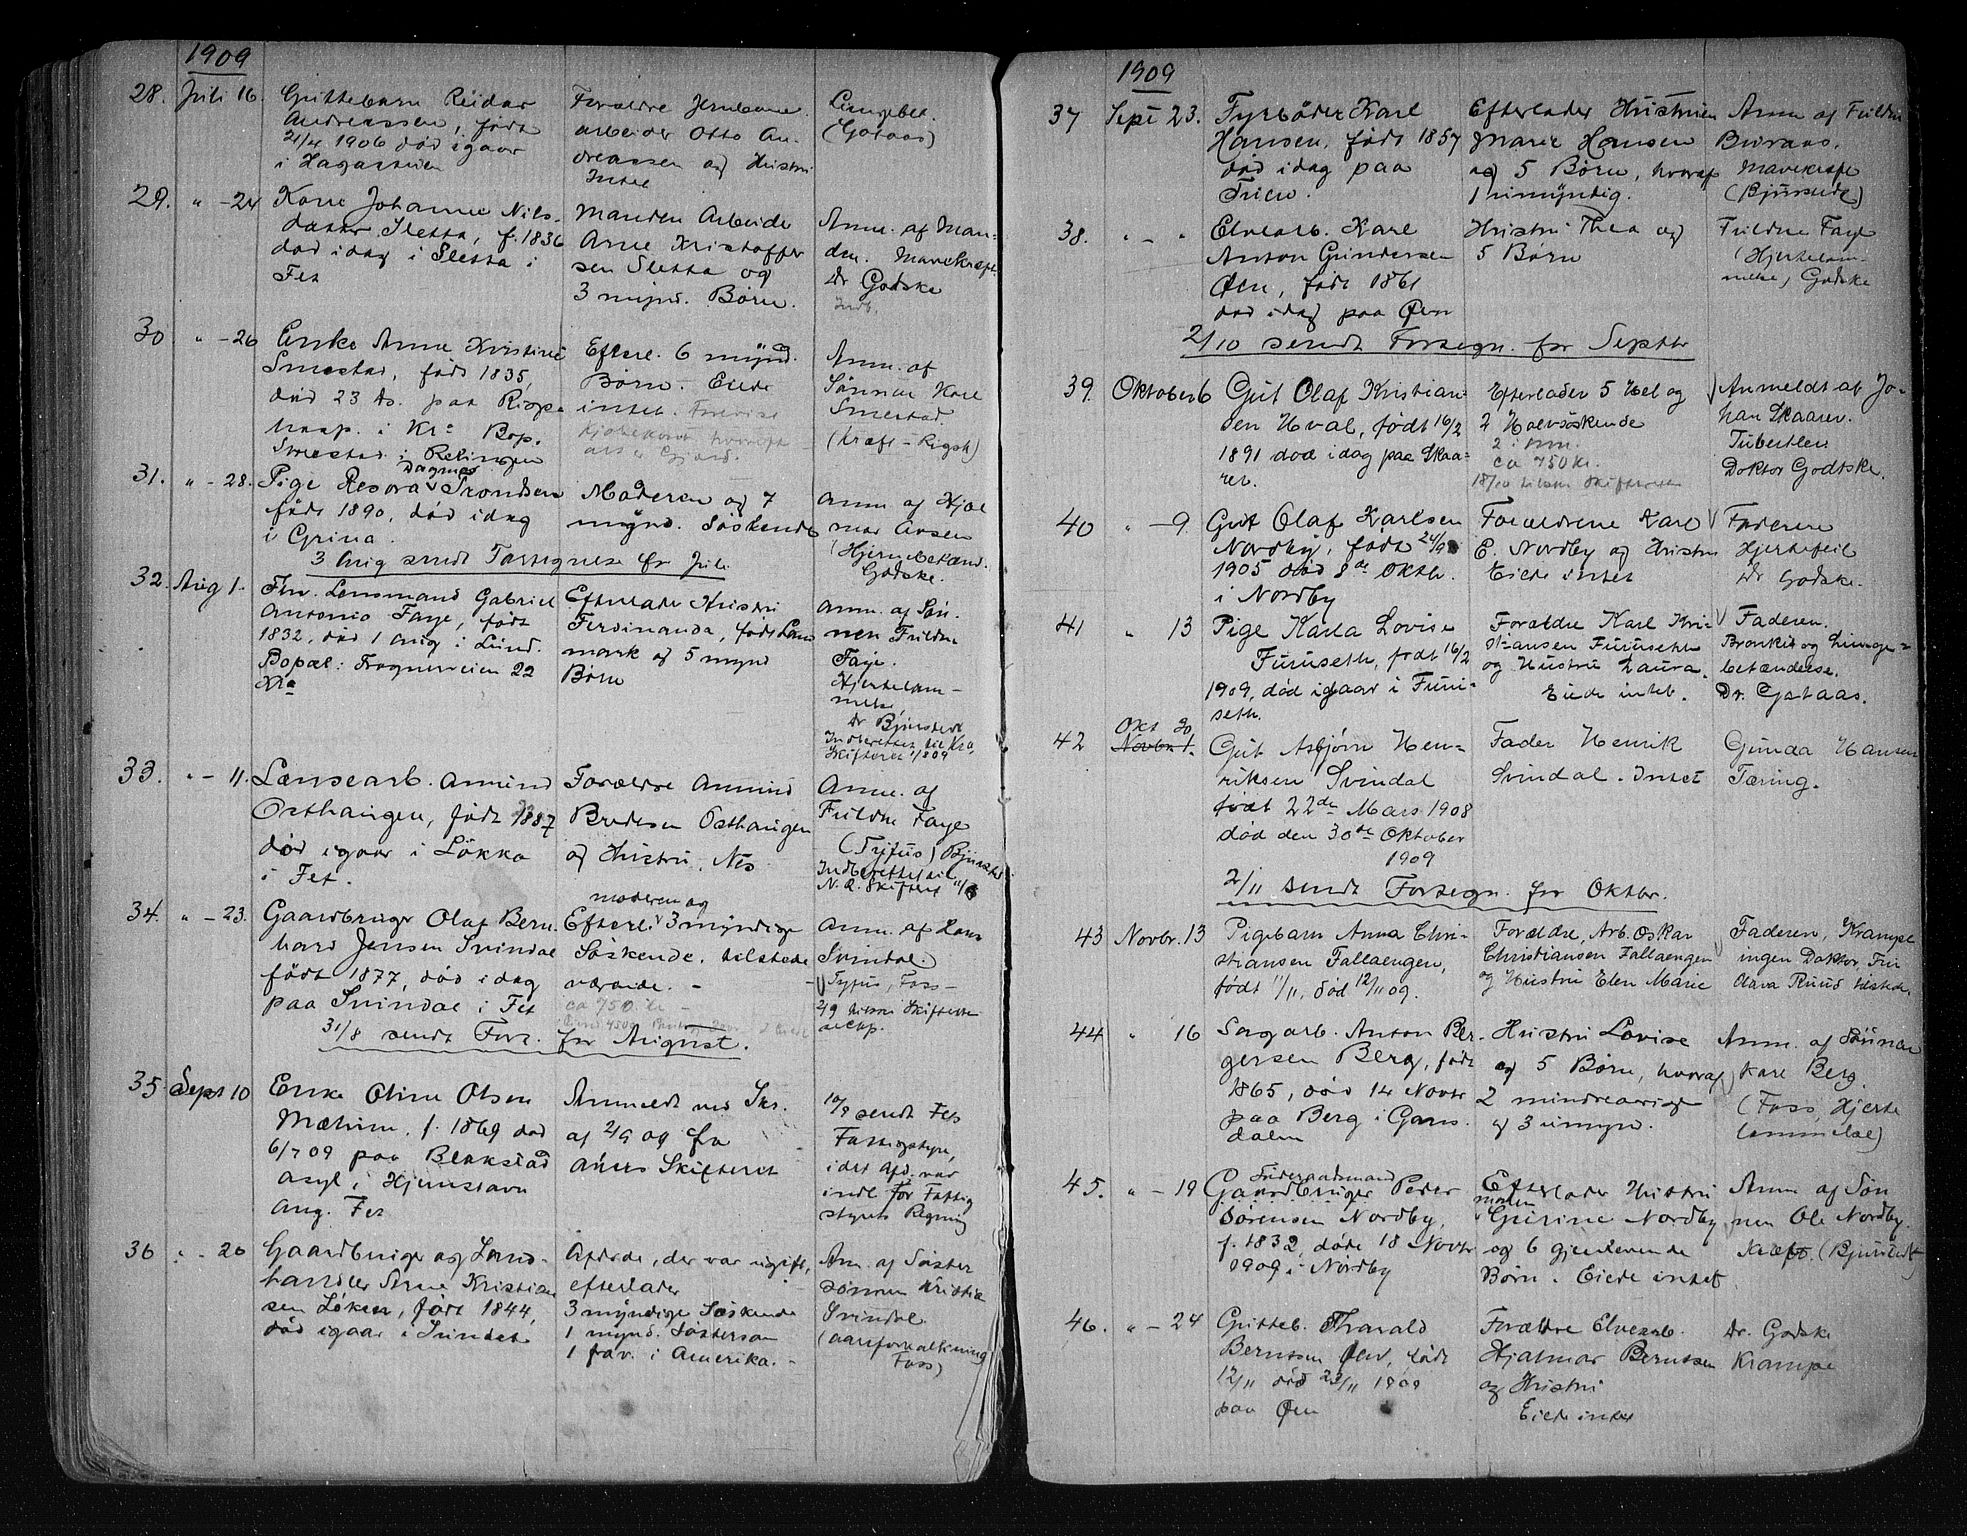 1909
28. Juli 16. Guttebarn Reidar
Andreassen, født
21/4 1906 død igaar
i Hagastuen
Forældre Jernbane
arbeider Otto An
dreassen og Hustru
Intet
Lungebet.
(Gotaas)
29. " - 24 Kone Johanne Nils-
datter Sletta, f. 1836
død idag i Sletta i
Fet
Manden Arbeider
Arne Kristoffer
sen Sletta og
3 mynd. Børn.
Anm. af Man-
den. Mavekræft.
Dr Godske
Indb.
30 " - 26 Enke Anne Kristine
Smestad, født 1835,
død 23 ds. paa Rigs
hosp. i Kra Bop.
Smestad i Relingen
Efterl. 6 mynd.
Børn. Eiede
intet.
Anm. af
Sønnen Karl
Smestad.
(Kræft - Rigsh)
31. " - 28. Pige Resora Dagmar Trondsen
født 1890, død idag
i Grina.
Moderen og 7
mynd. Søskende
Anm. af Hjal
mar Arsen
(Hjernebetænd.
Godske.
3 Aug sendt Fortegnelse for Juli
32. Aug 1. Fhv. Lensmand Gabriel
Antonio Faye, født
1832, død 1 Aug i Lund.
Bopæl: Frognerveien 22
Kra
Efterlader Hustru
Ferdinanda, født Land
mark og 5 mynd
Børn
Anm. af Søn-
nen Fuldm
Faye.
Hjertelam-
melse,
Dr Bjursted
Indberettet til Kra
Skifteret 4/8 09
33. " - 11. Lænsearb. Amund
Østhaugen, født 1887
død igaar i Løkka
i Fet.
Forældre Amund
Bredesen Østhaugen
og Hustru, Nes
Anm. af
Fuldm Faye
(Tyfus) Bjursted
Indberettet til
N. R. Skifteret
34. " - 23. Gaardbruger Olaf Bern
hard Jensen Svindal
født 1877, død idag
paa Svindal i Fet
moderen og
Efterl. 3 myndige
Søskende, tilstede
værende. -
ca 750 kr -
Anm. af Lars
Svindal.
Tyfus, Foss -
31/8 sendt Fort. for August.
35. Sept 10 Enke Oline Olsen
Mæhlum, f. 1869 død
6/7 09 paa Blakstad
Asyl i Hjemstavn
Ang. Fet
Anmeldt ved Skr.
af 2/9 09 fra
Akers Skifteret
10/9 sendt Fets
Fattigstyre,
idet Afd. var
indl for Fattig
styrets Regning
36 " - 20 Gaardbruger og Land-
handler Arne Kristian
sen Løken, født 1844,
død igaar i Svindal
Afdøde, der var ugift,
efterlader
3 myndige Søskende
1 mynd. Søstersøn
1 frav. i Amerika. -
Anm. af Søster
sønnen Kristian
Svindal.
(aareforkalkning
Foss)
1909
37 Sept 23. Fyrbøder Karl
Hansen, født 1857
død idag paa
Trien.
Efterlader Hustruen
Marie Hansen
og 5 Børn, hvoraf
1 umyndig.
Anm af Fuldm
Buraas.
Mavekræft
(Bjursted)
38. " - " Elvearb. Karl
Anton Gundersen
Øen, født 1861
død idag paa Øen
Hustru Thea og
5 Børn
Fuldm Faye
(Hjertelam-
melse, Godske
2/10 sendt Fortegn. for Septbr
39. Oktober 6 Gut Olaf Kristian-
sen Hval, født 16/2
1891 død idag paa Skaa-
ret.
Efterlader 5 Hel og
2 Halvsøskende
2 umm.
ca 750 kr.
Anmeldt af Jo-
han Skaaret.
Tuberkler.
Doktor Godtske.
40 " - 9. Gut Olaf Karlsen
Nordby, født 24/9
1905 død 8de Oktbr.
i Nordby
Forældrene Karl
E. Nordby og Hustru
Eiede intet
Faderen
Hjertefeil
Dr Godske.
41 " 13 Pige Karla Lovise
Furuseth, født 16/2
1909, død igaar i Furu-
seth.
Forældre Karl Kri-
stiansen Furuseth
og Hustru Laura.
Eiede intet.
Faderen.
Bronkit og Lunge-
betændelse.
Dr. Gotaas.
42 Okt 30
Novbr. 1. Gut Asbjørn Hen-
riksen Svindal
født 22de Mars 1908
død den 30te Oktober
1909
Fader Henrik
Svindal. Intet
Gunda Hansen
Tæring.
2/11 sendt Fortegn. for Oktbr.
43 Novbr. 13 Pigebarn Anna Chri-
stiansen Fallaengen,
født 11/11, død 12/11 09.
Forældre, Arb. Oskar
Christiansen Fallaengen
og Hustru Elen Marie
Faderen, Krampe
ingen Doktor, Fru
Olava Ruud tilstede.
44 " 16 Sagarb. Anton Ber-
gersen Berg, født
1865, død 14 Novbr
paa Berg i Gans-
dalen
Hustru Lovise
og 5 Børn, hvoraf
2 mindreaarige
og 3 umyn.
Anm. af Sønnen
Karl Berg.
(Foss, Hjerte
lammelse)
45. " - 19 Føderaadsmand
Gaardbruger Peder
Sørensen Nordby,
f. 1832, døde 18 Novbr
1909 i Nordby
Efterlader Hustru
Gurine Nordby
og 6 gjenlevende
Børn. Eiede intet
Anm af Søn
nen Ole Nordby.
Kræft (Bjursted)
46. " - 24 Gutteb. Tharald
Berntsen Øen, født
12/11 død 23/11 1909
paa Øen
Forældre Elvearb.
Hjalmar Berntsen
og Hustru
Eiede intet
Dr. Godske
Krampe